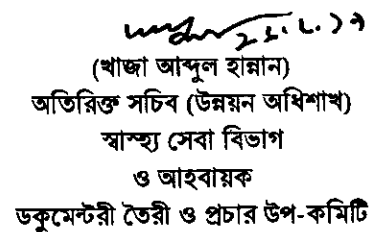 (খাজা আব্দুল হান্নান)
অতিরিক্ত সচিব (উন্নয়ন অধিশাখ)
স্বাস্হ্য সেবা বিভাগ
ও আহবায়ক
ডকুমেন্টরী তৈরী ও প্রচার উপ-কমিটি